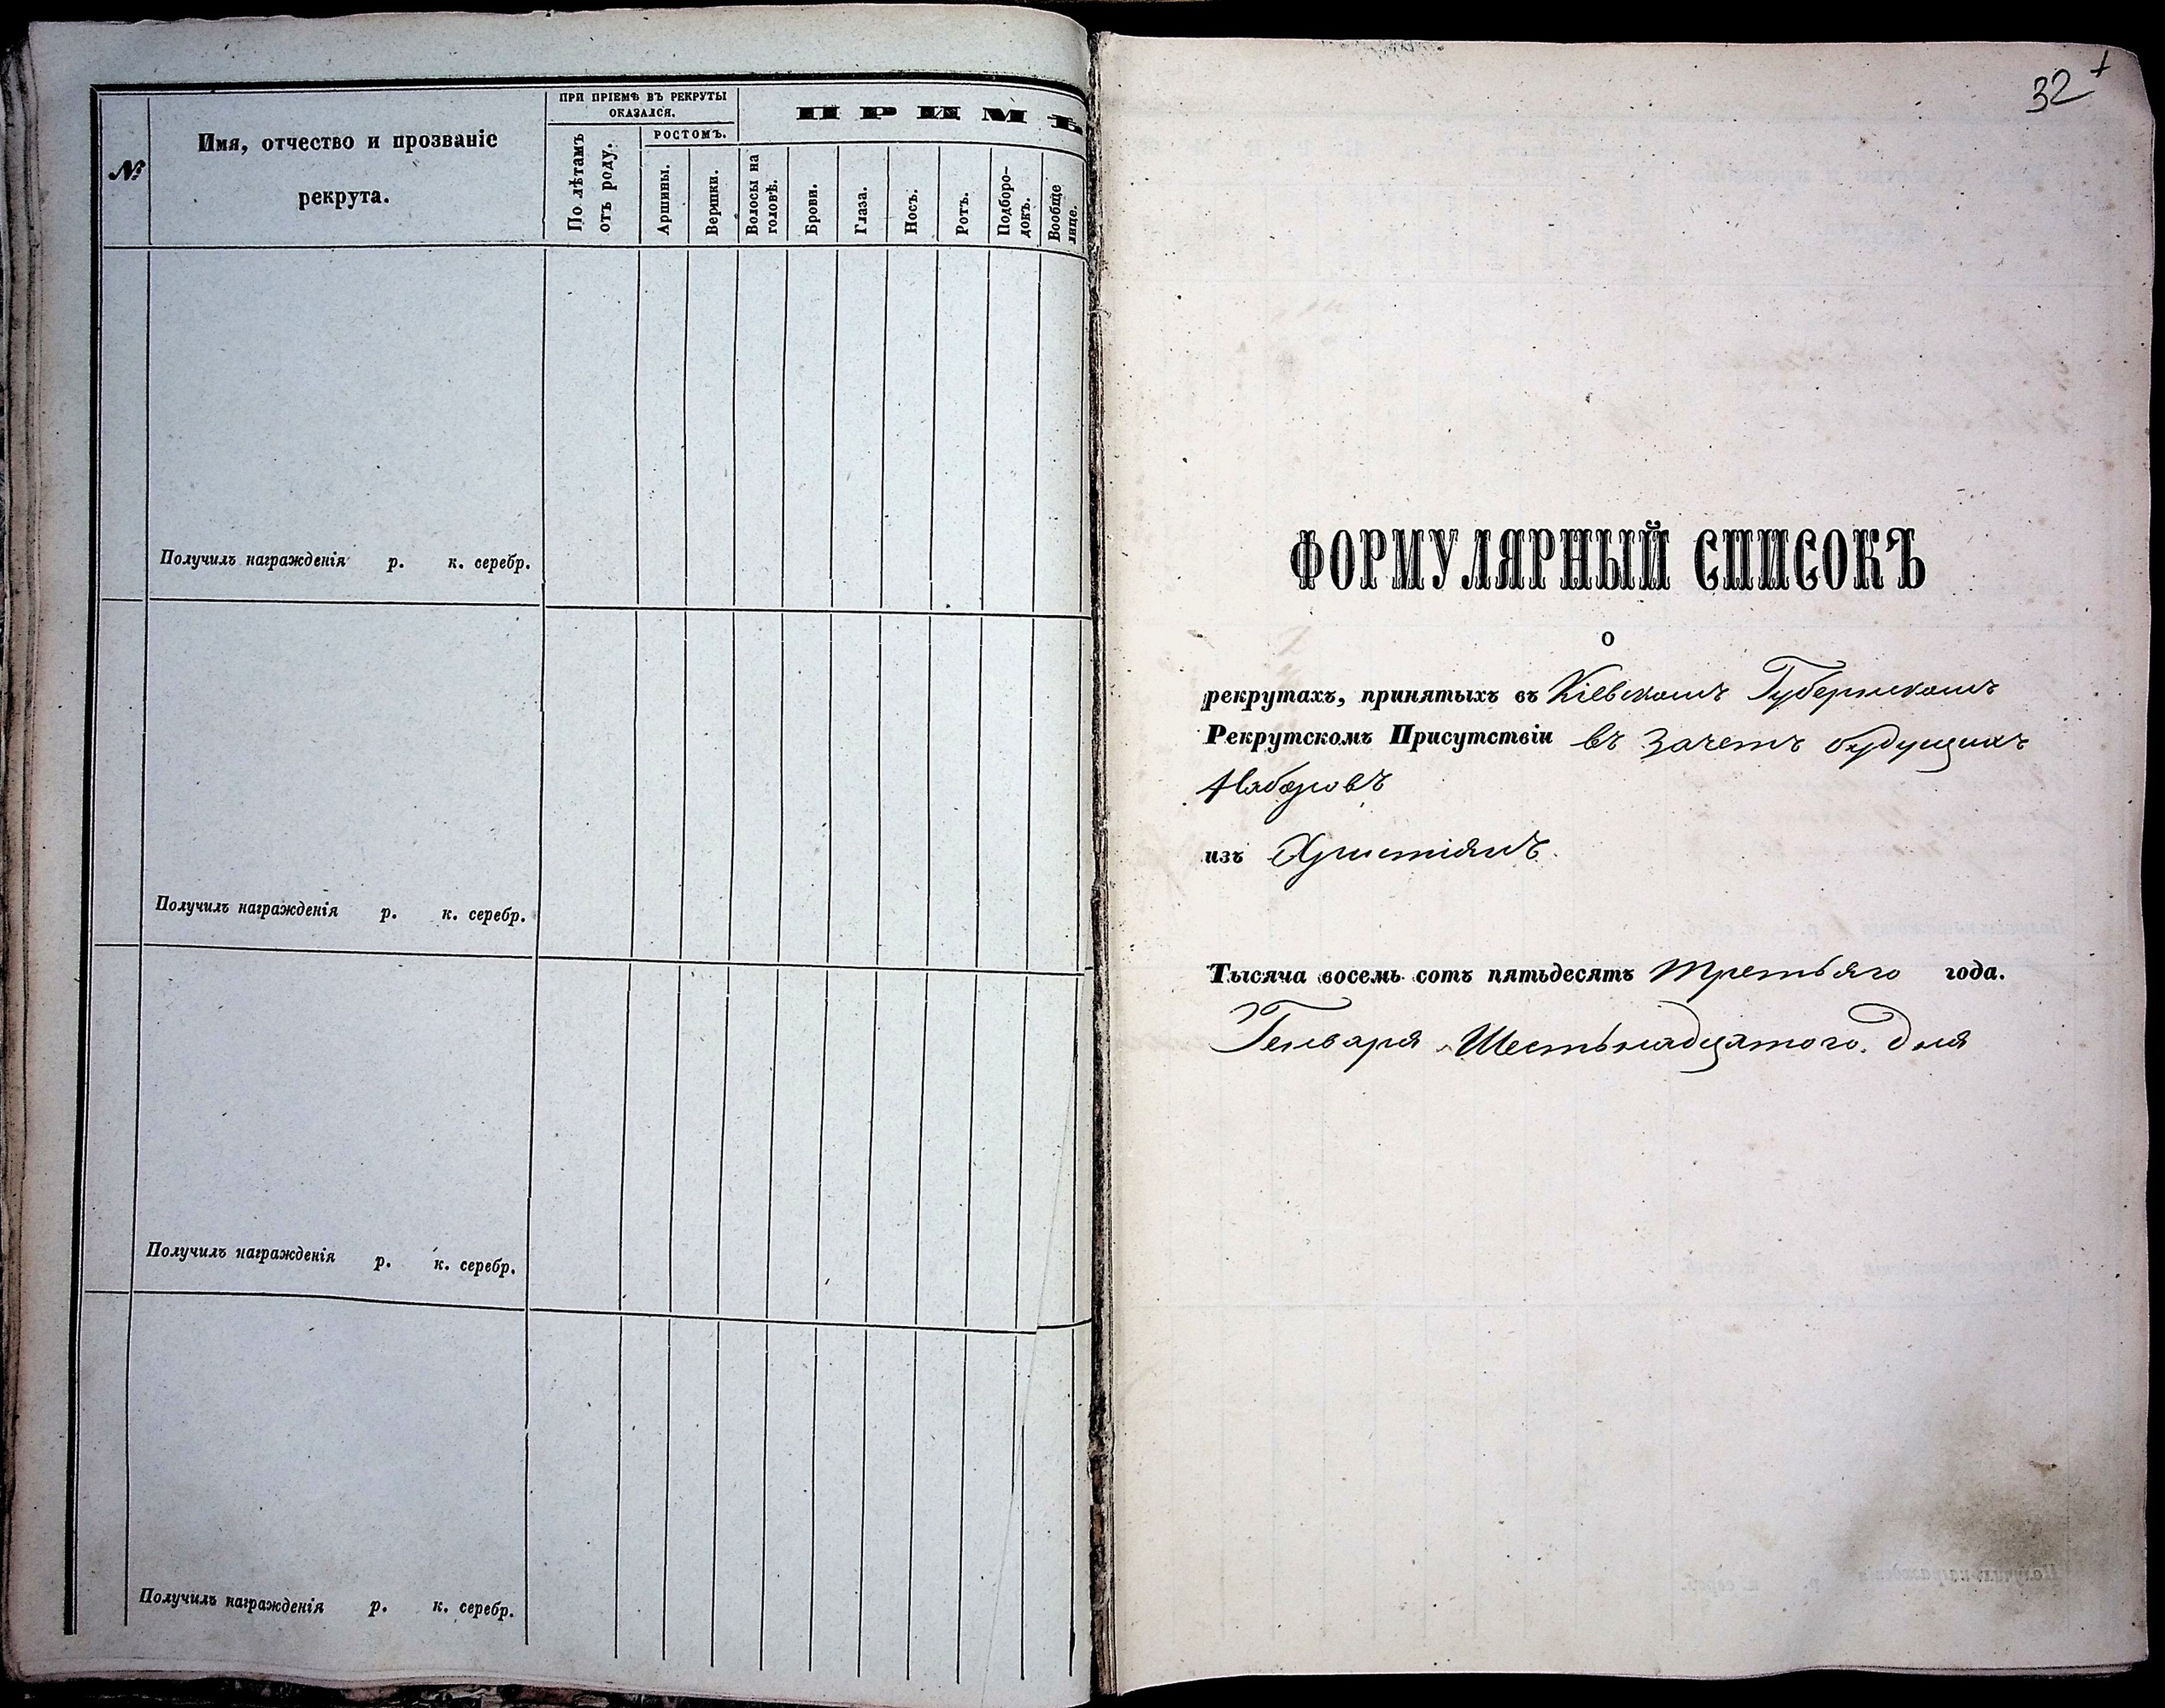 №
Имя, отчество и прозваніе
рекрута.
ПРИ ПРІЕМѢ ВЪ РЕКРУТЫ
ОКАЗАЛСЯ.
По лѣтамъ
отъ роду.
РОСТОМЪ.
Аршины.
Вершки.
ПРИМѢ
Волосы на
головѣ.
Брови.
Глаза.
Носъ.
Ротъ.
Подборо-
докъ.
Вообще
лице.
Получилъ награжденія р. к. серебр.
Получилъ награжденія р. к. серебр.
Получилъ награжденія р. к. серебр.
Получилъ награжденія р. к. серебр.
32
ФОРМУЛЯРНЫЙ СПИСОКЪ
О
рекрутахъ, принятыхъ въ Кіевскомъ Губернскомъ
Рекрутскомъ Присутствіи въ зачетъ будущихъ
Наборовъ
изъ Христіянъ.
Тысяча восемь сотъ пятьдесятъ третьяго года.
Генваря Шестьнадцатого дня